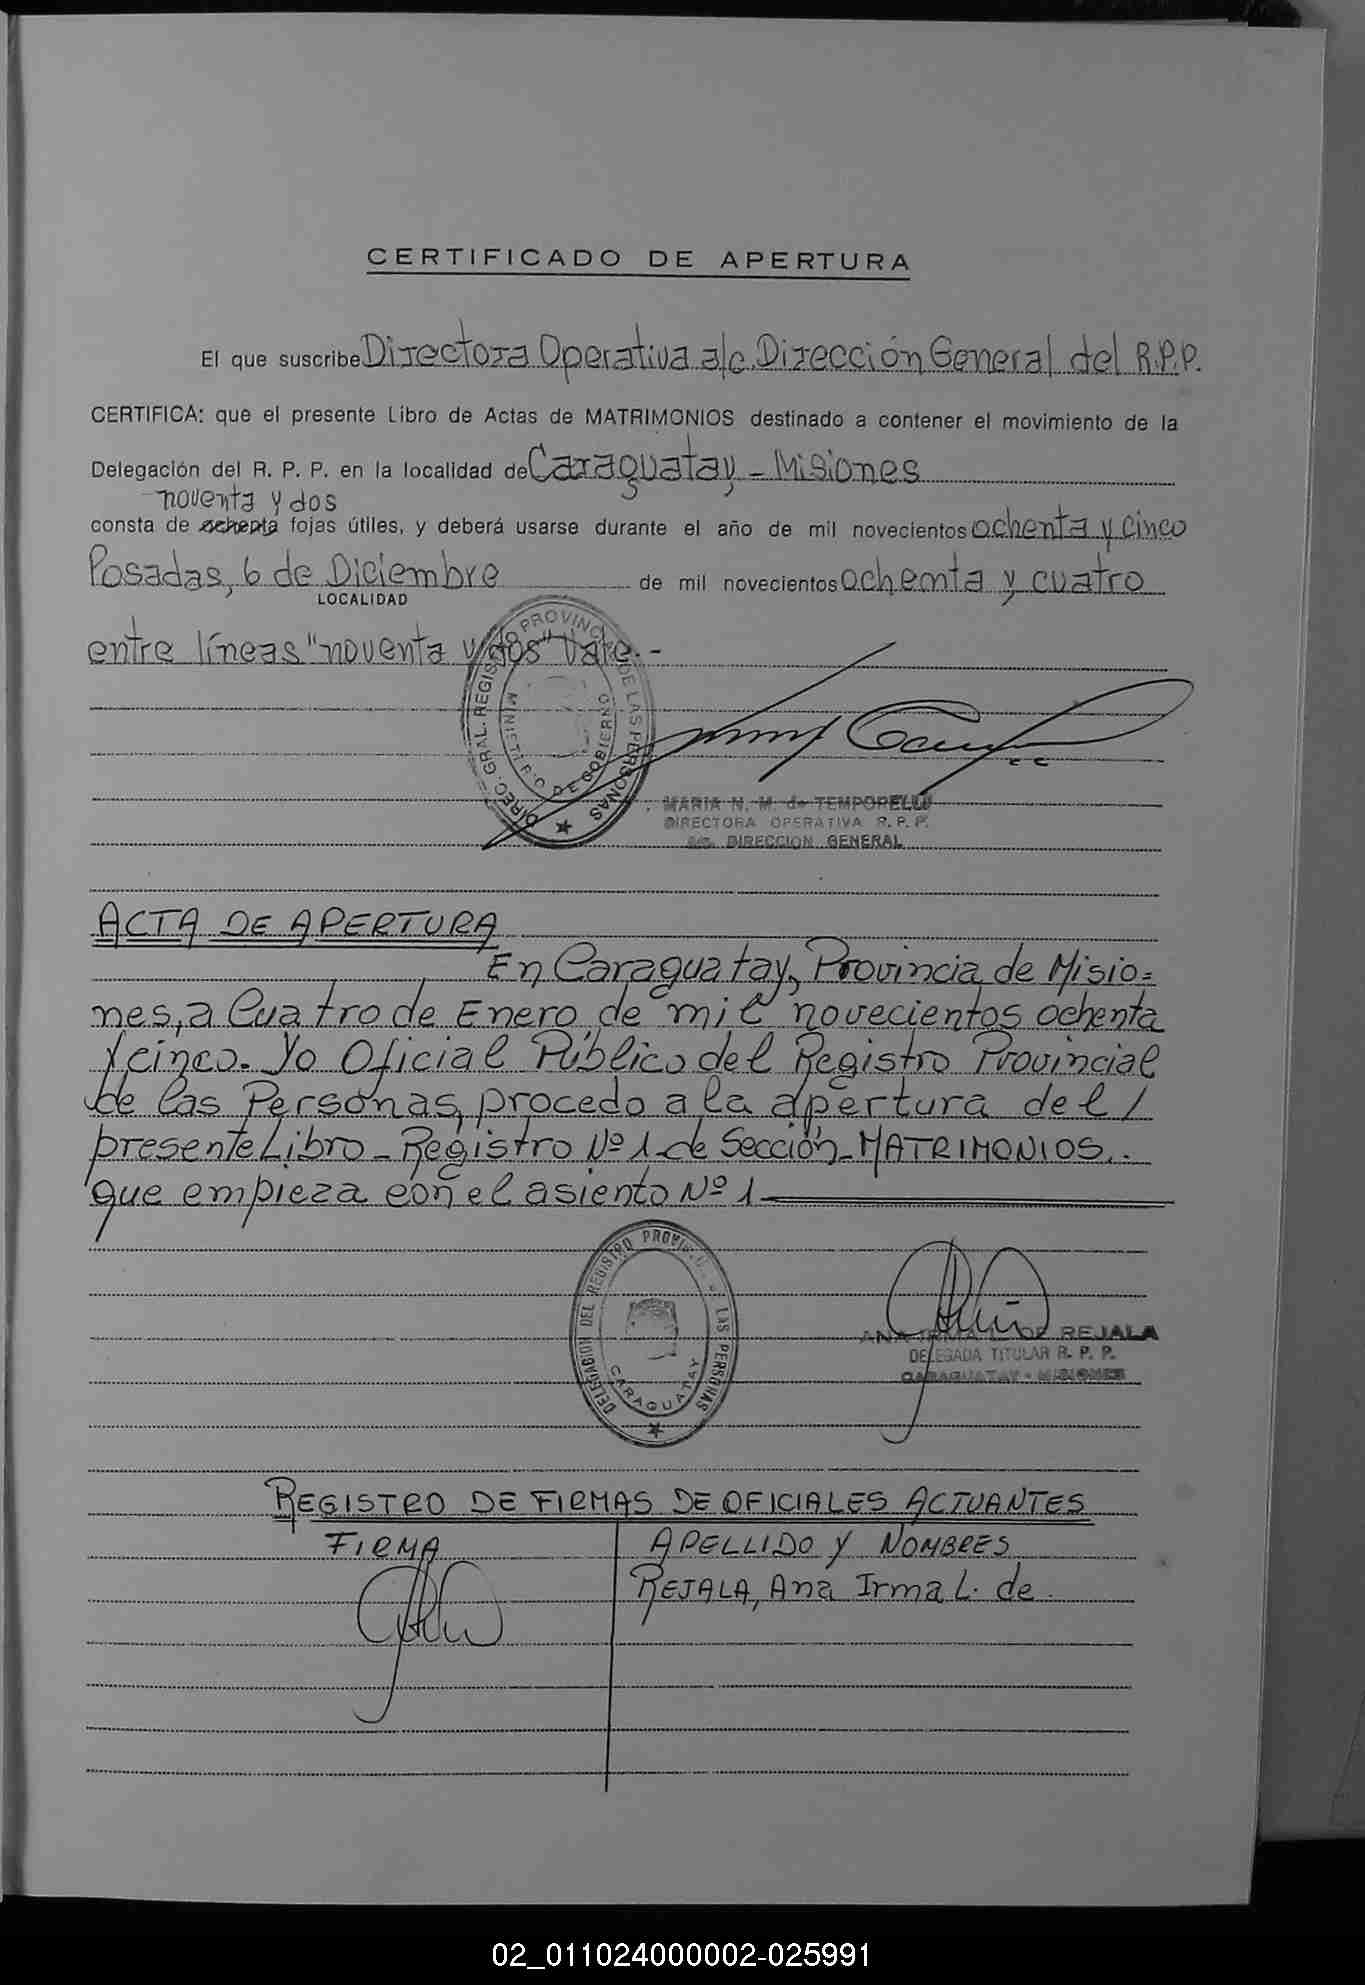 CERTIFICADO DE APERTURA
El que suscribe Directora Operativa a/c. Dirección General del R.P.P.
CERTIFICA: que el presente Libro de Actas de MATRIMONIOS destinado a contener el movimiento de la
Delegación del R. P. P. en la localidad de Caraguatay - Misiones
noventa y dos
consta de ochenta fojas útiles, y deberá usarse durante el año de mil novecientos ochenta y cinco
Posadas, 6 de Diciembre de mil novecientos ochenta y cuatro
LOCALIDAD
entre líneas "noventa y dos" Vale.-
DIREC. GRAL. REGISTRO PROVINCIAL DE LAS PERSONAS
MINISTERIO DE GOBIERNO
MARIA N. M. de TEMPORELLI
DIRECTORA OPERATIVA R. P. P.
a/c. DIRECCION GENERAL
ACTA DE APERTURA
En Caraguatay, Provincia de Misio=
nes, a Cuatro de Enero de mil novecientos ochenta
y cinco. Yo Oficial Público del Registro Provincial
de las Personas, procedo a la apertura del /
presente Libro - Registro Nº 1 de Sección - MATRIMONIOS..
que empieza con el asiento Nº 1
DELEGACION DEL REGISTRO PROVINCIAL DE LAS PERSONAS
CARAGUATAY
ANA IRMA L. DE REJALA
DELEGADA TITULAR R. P. P.
CARAGUATAY - MISIONES
REGISTRO DE FIRMAS DE OFICIALES ACTUANTES
FIRMA APELLIDO Y NOMBRES
REJALA, Ana Irma L. de
02_011024000002-025991